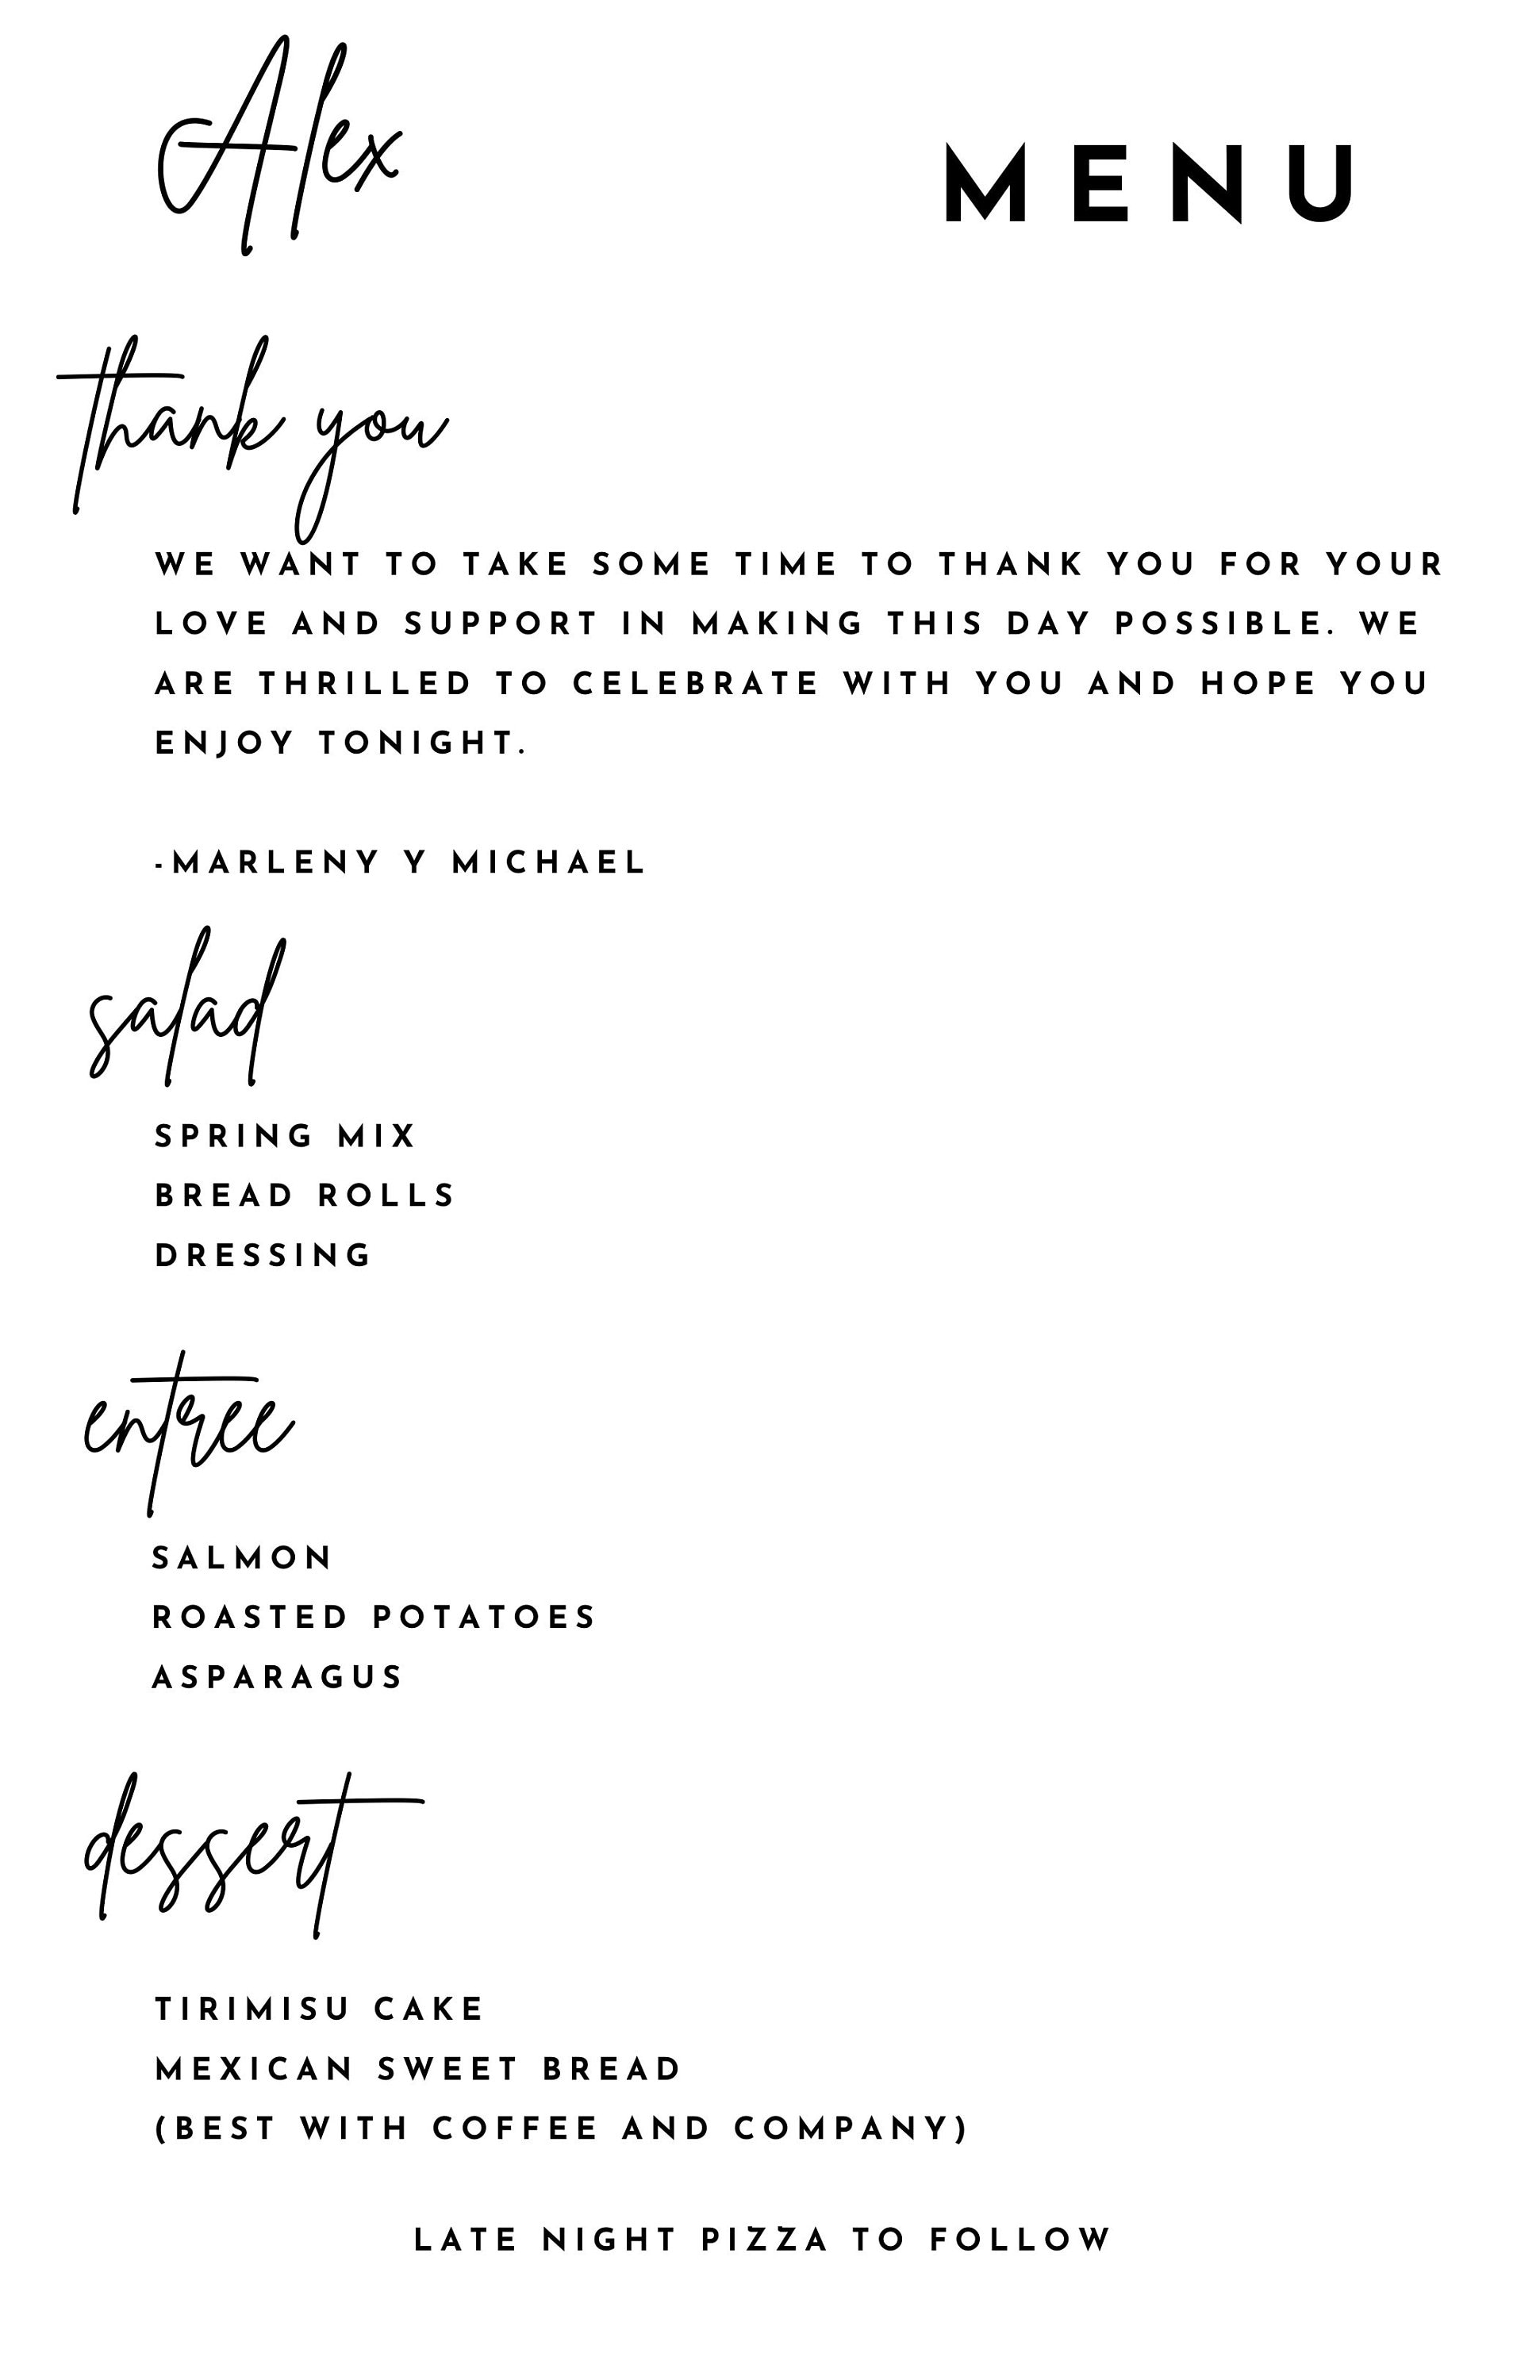 Alex
MENU
thank you
WE WANT TO TAKE SOME TIME TO THANK YOU FOR YOUR
LOVE AND SUPPORT IN MAKING THIS DAY POSSIBLE. WE
ARE THRILLED TO CELEBRATE WITH YOU AND HOPE YOU
ENJOY TONIGHT.
-MARLENY Y MICHAEL
salad
SPRING MIX
BREAD ROLLS
DRESSING
entree
SALMON
ROASTED POTATOES
ASPARAGUS
dessert
TIRIMISU CAKE
MEXICAN SWEET BREAD
(BEST WITH COFFEE AND COMPANY)
LATE NIGHT PIZZA TO FOLLOW